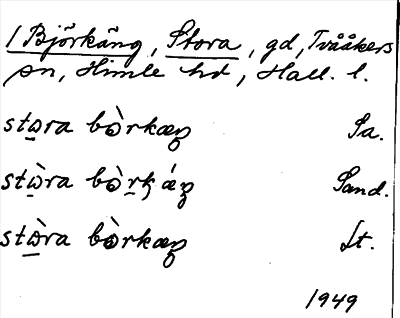 1 Björkäng, Stora, gd, Tvååkers
sn, Himle hd, Hall. l.
stɷra bɷ̀rkæŋ Sa.
stɷ̀ra bɷ̀rkǽŋ Sand.
stɷ̀ra bɷ̀rkæŋ Lt.
1949